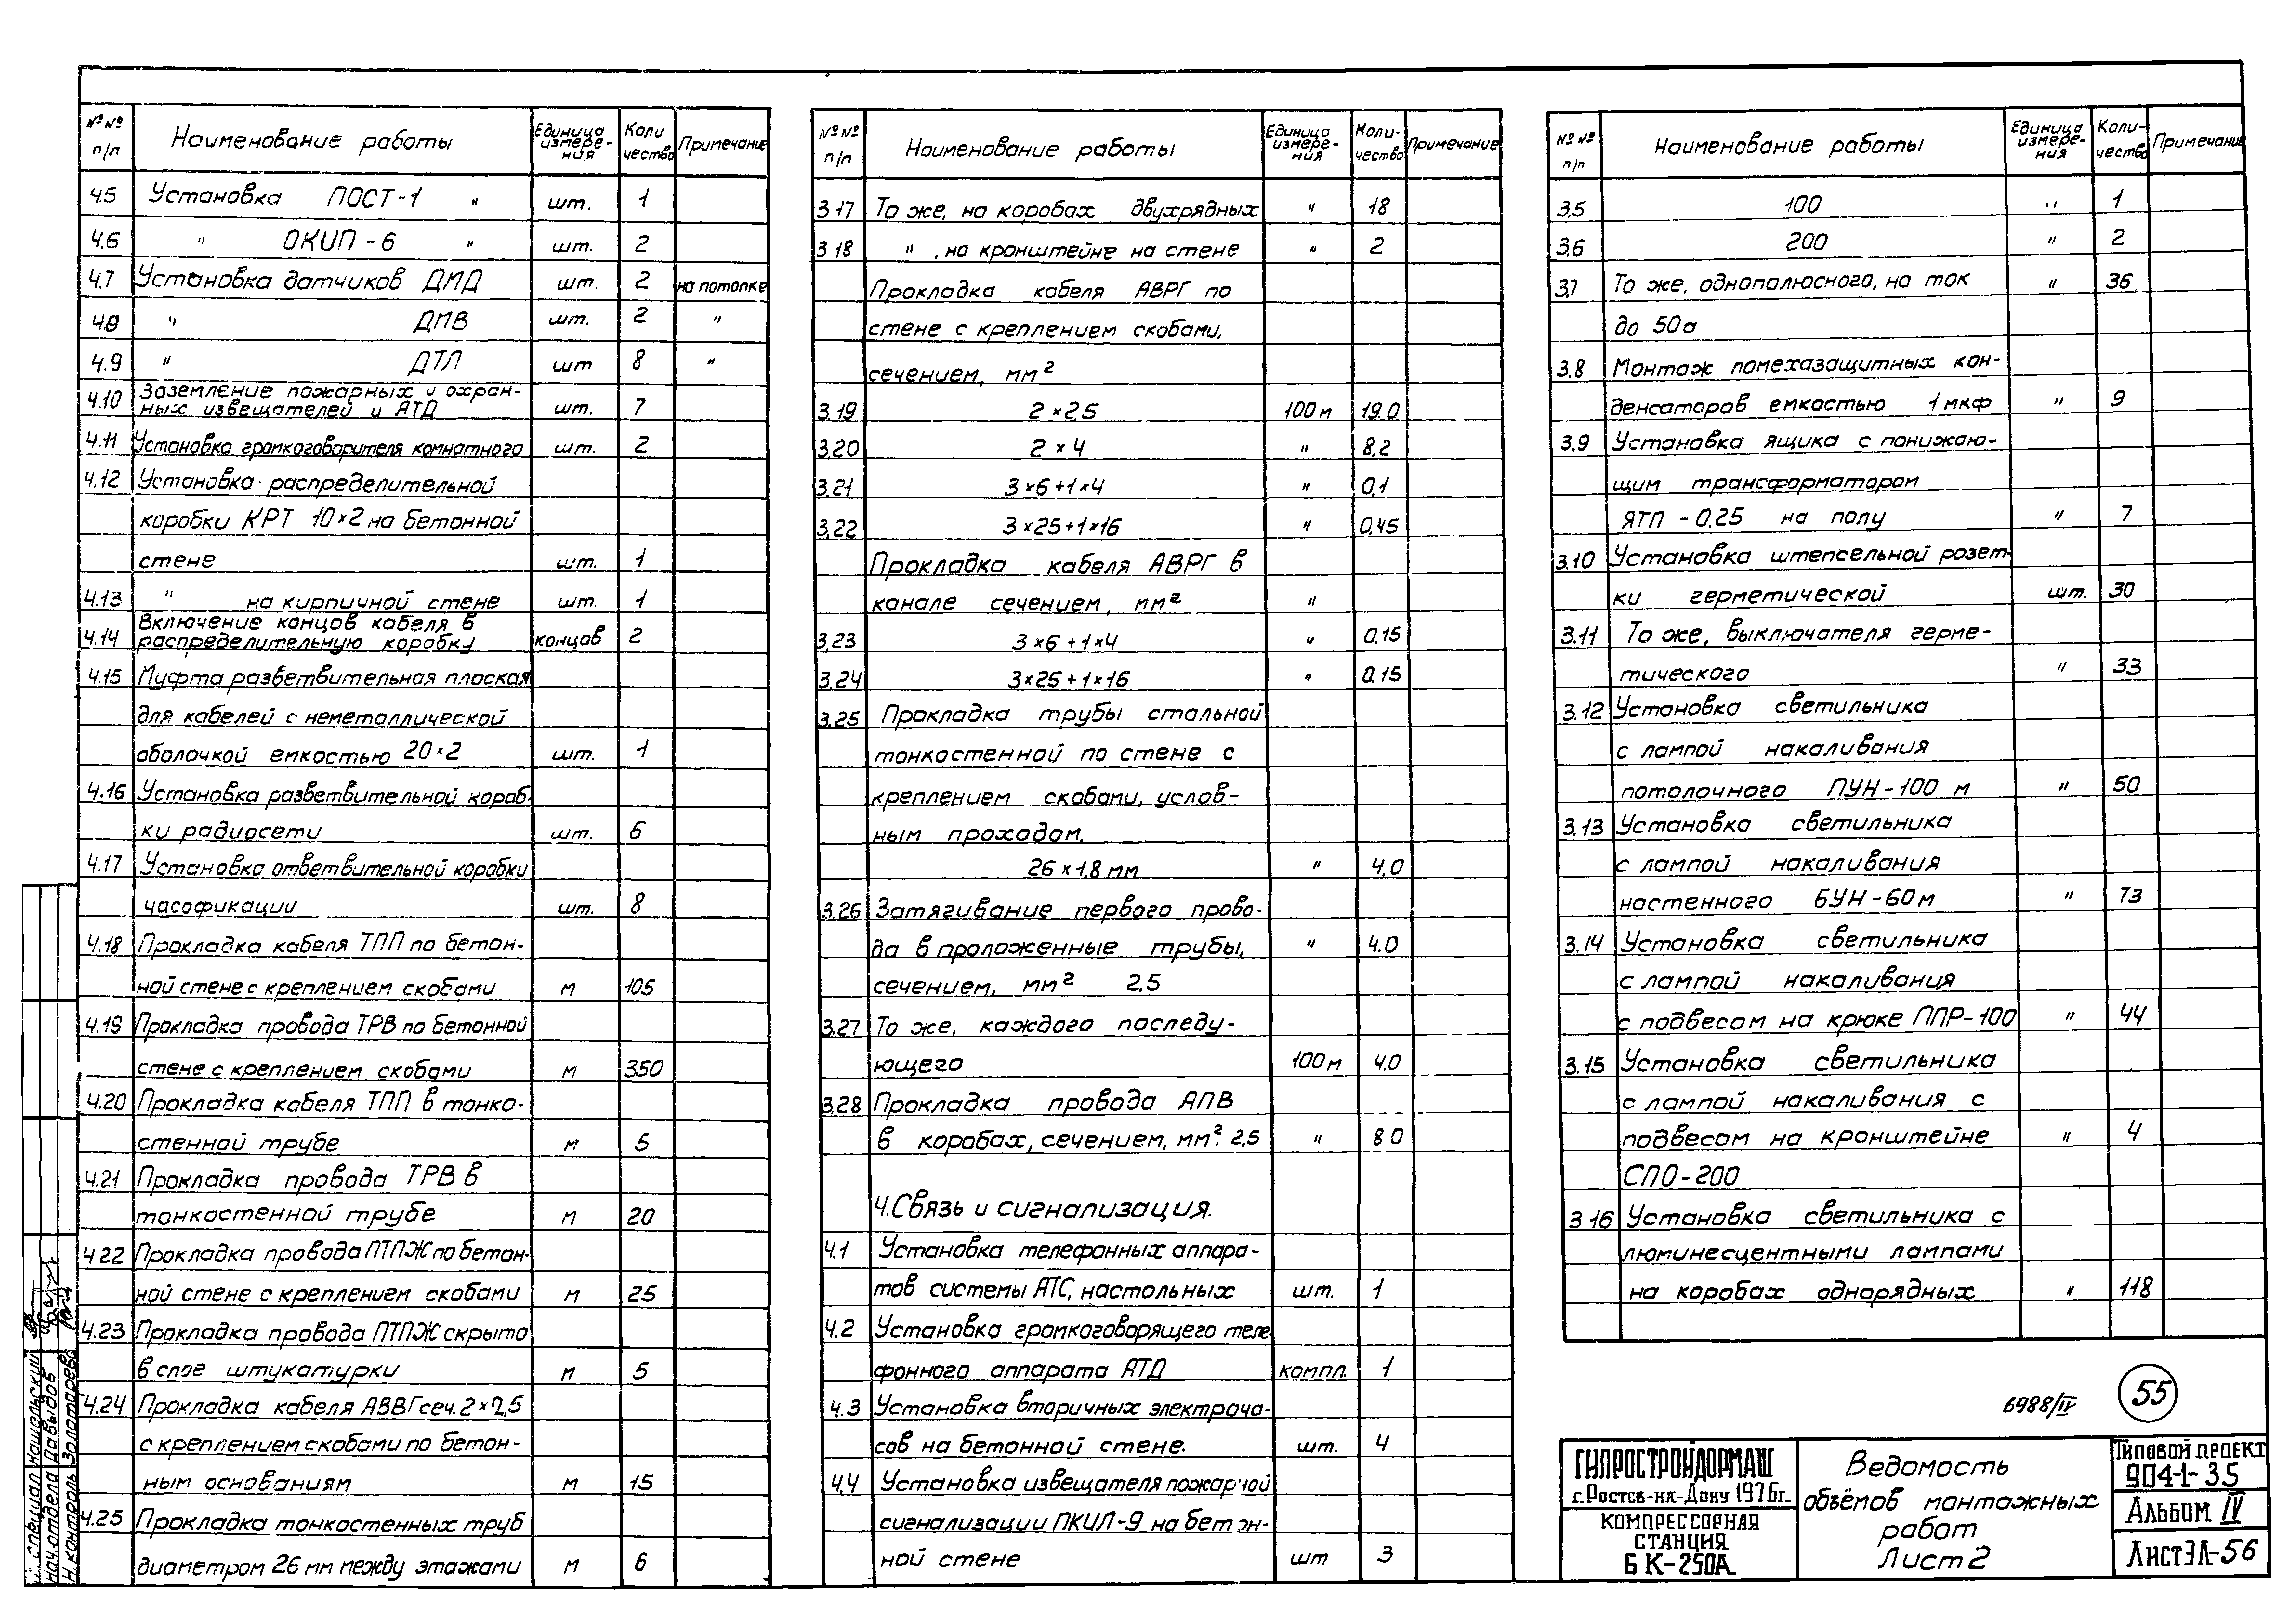 №№ п/п Наименование работы Единица измере-ния Коли чество Примечание
4.5 Установка ПОСТ-1 " шт. 1
4.6 " ОКИП-6 " шт. 2
4.7 Установка датчиков ДМД шт. 2 на потолке
4.8 " ДМВ шт. 2 "
4.9 " ДТЛ шт 8 "
4.10 Заземление пожарных и охран-
ных извещателей и АТД шт. 7
4.11 Установка громкоговорителя комнатного шт. 2
4.12 Установка распределительной
коробки КРТ 10×2 на бетонной
стене шт. 1
4.13 " на кирпичной стене шт. 1
4.14 Включение концов кабеля в
распределительную коробку концов 2
4.15 Муфта разветвительная плоская
для кабелей с неметаллической
оболочкой емкостью 20×2 шт. 1
4.16 Установка разветвительной короб-
ки радиосети шт. 6
4.17 Установка ответвительной коробки
часофикации шт. 8
4.18 Прокладка кабеля ТПП по бетон-
ной стене с креплением скобами м 105
4.19 Прокладка провода ТРВ по бетонной
стене с креплением скобами м 350
4.20 Прокладка кабеля ТПП в тонко-
стенной трубе м 5
4.21 Прокладка провода ТРВ в
тонкостенной трубе м 20
4.22 Прокладка провода ПТПЖ по бетон-
ной стене с креплением скобами м 25
4.23 Прокладка провода ПТПЖ скрыто
в слое штукатурки м 5
4.24 Прокладка кабеля АВВГ сеч. 2×2,5
с креплением скобами по бетон-
ным основаниям м 15
4.25 Прокладка тонкостенных труб
диаметром 26 мм между этажами м 6
№№ п/п Наименование работы Единица измере-ния Коли-чество Примечание
3.17 То же, на коробах двухрядных " 18
3.18 " , на кронштейне на стене " 2
Прокладка кабеля АВРГ по
стене с креплением скобами,
сечением, мм²
3.19 2×2,5 100 м 19.0
3.20 2×4 " 8,2
3.21 3×6+1×4 " 0,1
3.22 3×25+1×16 " 0,45
Прокладка кабеля АВРГ в
канале сечением, мм² "
3.23 3×6+1×4 " 0,15
3.24 3×25+1×16 " 0.15
3.25 Прокладка трубы стальной
тонкостенной по стене с
креплением скобами, услов-
ным проходом,
26×1,8 мм " 4,0
3.26 Затягивание первого прово-
да в проложенные трубы, " 4.0
сечением, мм² 2,5
3.27 То же, каждого последу-
ющего 100 м 4.0
3.28 Прокладка провода АПВ
в коробах, сечением, мм². 2,5 " 8 0
4.Связь и сигнализация.
4.1 Установка телефонных аппара-
тов системы АТС, настольных шт. 1
4.2 Установка громкоговорящего теле-
фонного аппарата АТД компл. 1
4.3 Установка вторичных электроча-
сов на бетонной стене. шт. 4
4.4 Установка извещателя пожарной
сигнализации ПКИЛ-9 на бетон-
ной стене шт 3
№№ п/п Наименование работы Единица измере-ния Коли-чество Примечание
3.5 100 " 1
3.6 200 " 2
3.7 То же, однополюсного, на ток " 36
до 50а
3.8 Монтаж помехазащитных кон-
денсаторов емкостью 1 мкф " 9
3.9 Установка ящика с понижаю-
щим трансформатором
ЯТП - 0,25 на полу " 7
3.10 Установка штепсельной розет-
ки герметической шт. 30
3.11 То же, выключателя герме-
тического " 33
3.12 Установка светильника
с лампой накаливания
потолочного ПУН-100 м " 50
3.13 Установка светильника
с лампой накаливания
настенного БУН-60м " 73
3.14 Установка светильника
с лампой накаливания
с подвесом на крюке ППР-100 " 44
3.15 Установка светильника
с лампой накаливания с
подвесом на кронштейне " 4
СПО-200
3.16 Установка светильника с
люминесцентными лампами
на коробах однорядных " 118
6988/IV 55
ГИПРОСТРОЙДОРМАШ
г.Ростов-на-Дону 1976г.
КОМПРЕССОРНАЯ
СТАНЦИЯ
6 К-250А
Ведомость
объёмов монтажных
работ
Лист 2
Типовой проект
904-1-35
Альбом IV
Лист ЭЛ-56
специал Нащельский
нач.отдела Давыдов
Н.контроль Золотарева